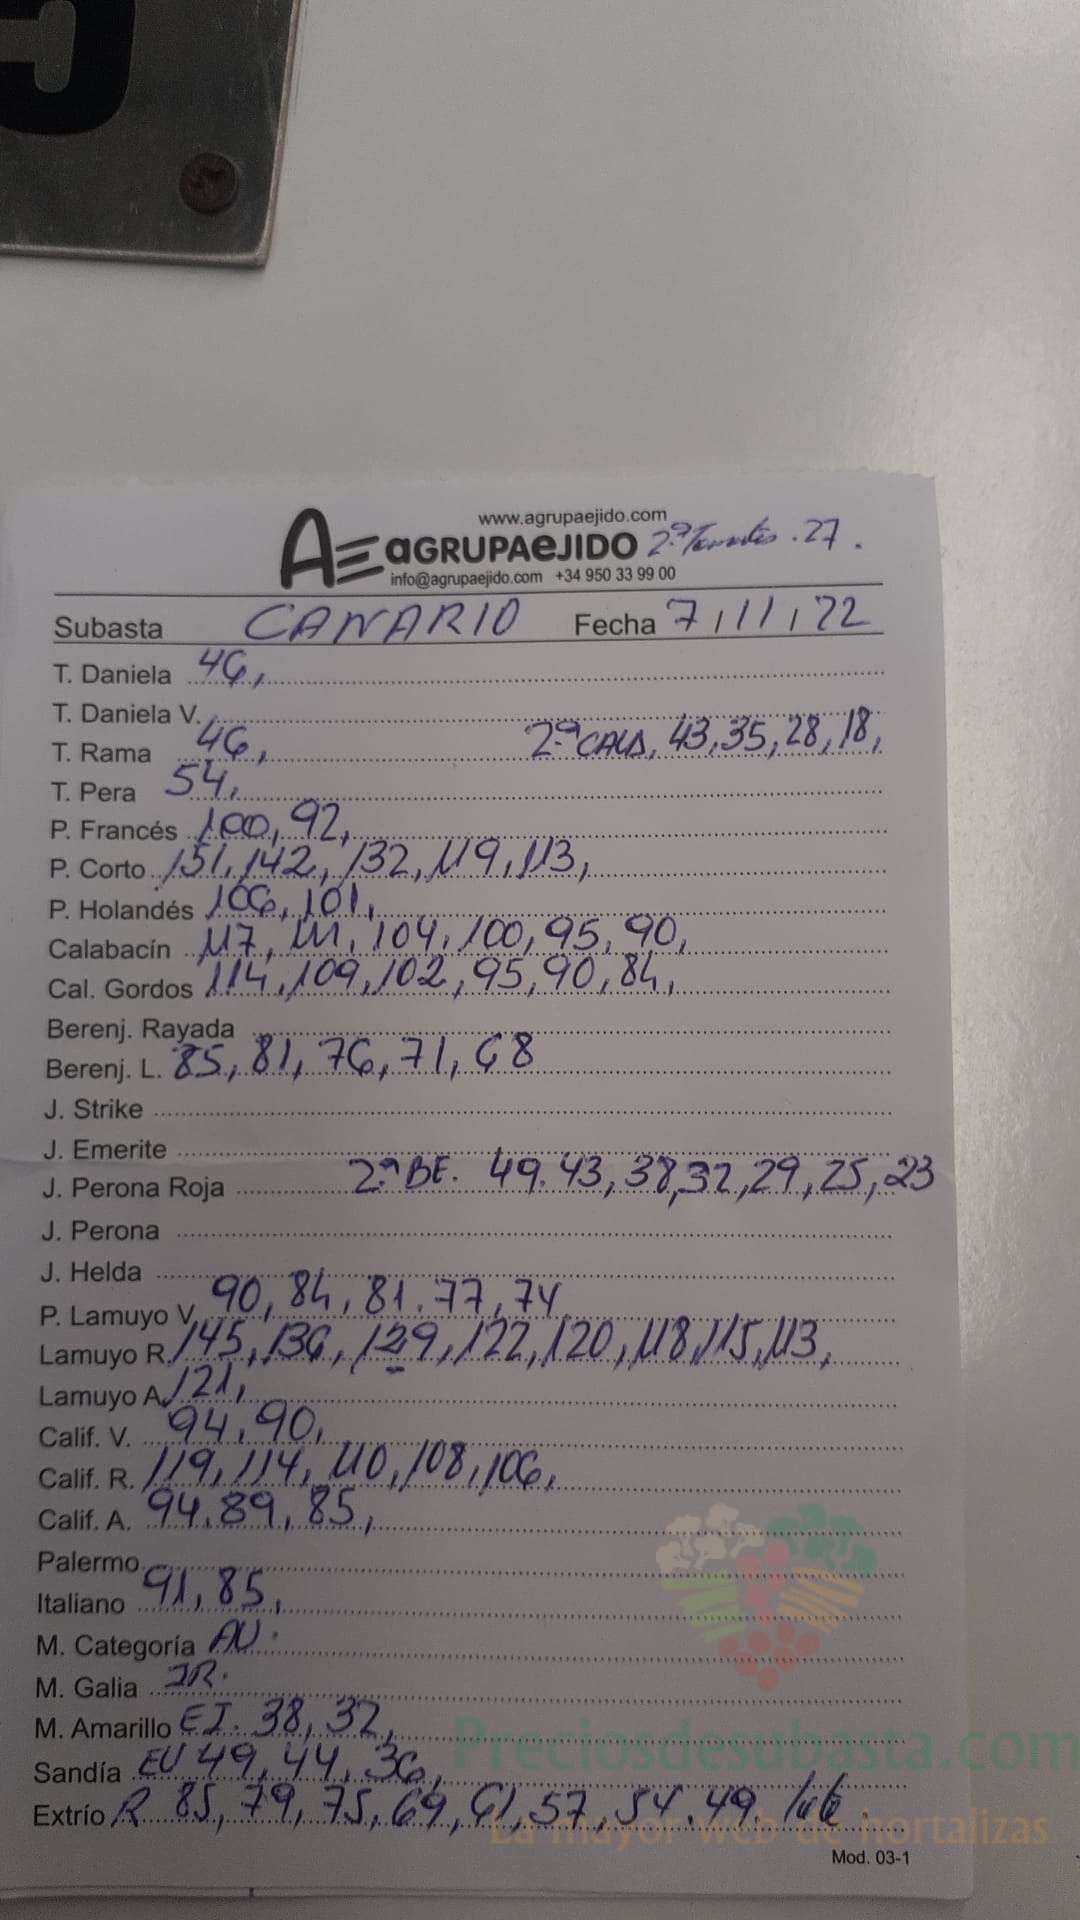 5
www.agrupaejido.com
AE aGRUPAeJIDO 2ª Tomates . 27 .
info@agrupaejido.com +34 950 33 99 00
Subasta CANARIO Fecha 7/11/22
T. Daniela 46,
T. Daniela V.
2ª CALA, 43, 35, 28, 18,
T. Rama 46,
T. Pera 54,
P. Francés 100, 92,
P. Corto 151, 142, 132, 119, 113,
P. Holandés 106, 101,
Calabacín 117, 111, 104, 100, 95, 90,
Cal. Gordos 114, 109, 102, 95, 90, 84,
Berenj. Rayada
Berenj. L. 85, 81, 76, 71, 68
J. Strike
J. Emerite
J. Perona Roja 2ª BE. 49. 43, 38, 32, 29, 25, 23
J. Perona
J. Helda
P. Lamuyo V. 90, 84, 81. 77, 74
Lamuyo R. 145, 136, 129, 122, 120, 118, 115, 113,
Lamuyo A. 121,
Calif. V. 94, 90,
Calif. R. 119, 114, 110, 108, 106,
Calif. A. 94. 89, 85,
Palermo
Italiano 91, 85,
M. Categoría AV.
M. Galia IR.
M. Amarillo EI. 38, 32,
Sandía EV 49, 44, 36,
Extrío R 85, 79, 75, 69, 61, 57, 54. 49
Preciosdesubasta.com
La mayor web de hortalizas
Mod. 03-1